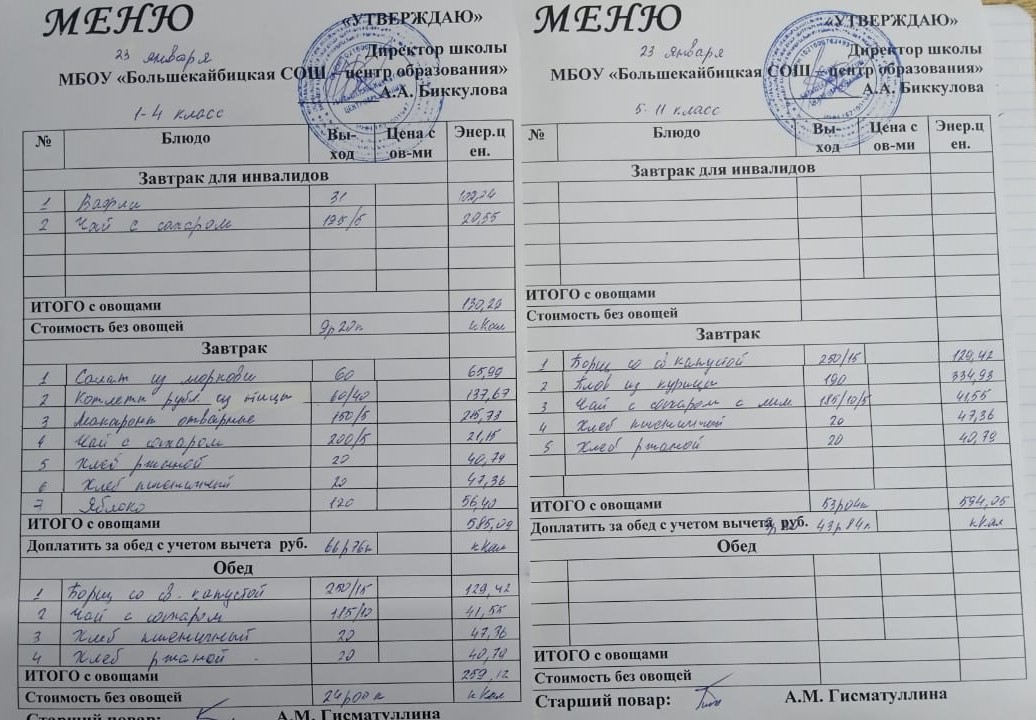 МЕНЮ
«УТВЕРЖДАЮ»
23 января
Директор школы
МБОУ «Большекайбицкая СОШ – центр образования»
А.А. Биккулова
1-4 класс
№ Блюдо Вы-ход Цена с ов-ми Энер.ц ен.
Завтрак для инвалидов
1 Вафли 31 109,74
2 Чай с сахаром 195/5 20,55
ИТОГО с овощами 130,29
Стоимость без овощей 9р20к кКал
Завтрак
1 Салат из моркови 60 65,99
2 Котлеты рубл. из птицы 60/40 137,67
3 Макароны отварные 150/5 215,73
4 Чай с сахаром 200/5 21,15
5 Хлеб ржаной 20 40,79
6 Хлеб пшеничный 20 47,36
7 Яблоко 120 56,40
ИТОГО с овощами 585,09
Доплатить за обед с учетом вычета руб. 66р76к кКал
Обед
1 Борщ со св. капустой 250/15 129,42
2 Чай с сахаром 185/10 41,55
3 Хлеб пшеничный 20 47,36
4 Хлеб ржаной 20 40,79
ИТОГО с овощами 259,12
Стоимость без овощей 24р00к кКал
Старший повар: А.М. Гисматуллина
МЕНЮ
«УТВЕРЖДАЮ»
23 января
Директор школы
МБОУ «Большекайбицкая СОШ – центр образования»
А.А. Биккулова
5-11 класс
№ Блюдо Вы-ход Цена с ов-ми Энер.ц ен.
Завтрак для инвалидов
ИТОГО с овощами
Стоимость без овощей
Завтрак
1 Борщ со св капустой 250/15 129,42
2 Плов из курицы 190 334,93
3 Чай с сахаром с лим 185/10/5 41,55
4 Хлеб пшеничный 20 47,36
5 Хлеб ржаной 20 40,79
ИТОГО с овощами 53р04к 594,05
Доплатить за обед с учетом вычета руб. 43р84к кКал
Обед
ИТОГО с овощами
Стоимость без овощей
Старший повар: А.М. Гисматуллина